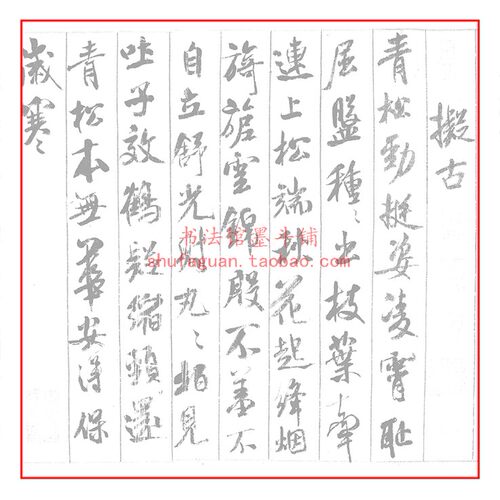 擬古
青松勁挺姿凌霄恥
屈盤種〻出枝葉牽
連上松端秋花起絳烟
旖旎雲錦殷不羞不
自立舒光射丸〻柏見
吐子效鶴疑縮頸還
青松本無華安得保
歲寒〻
书法馆墨斗铺
shufaguan.taobao.com